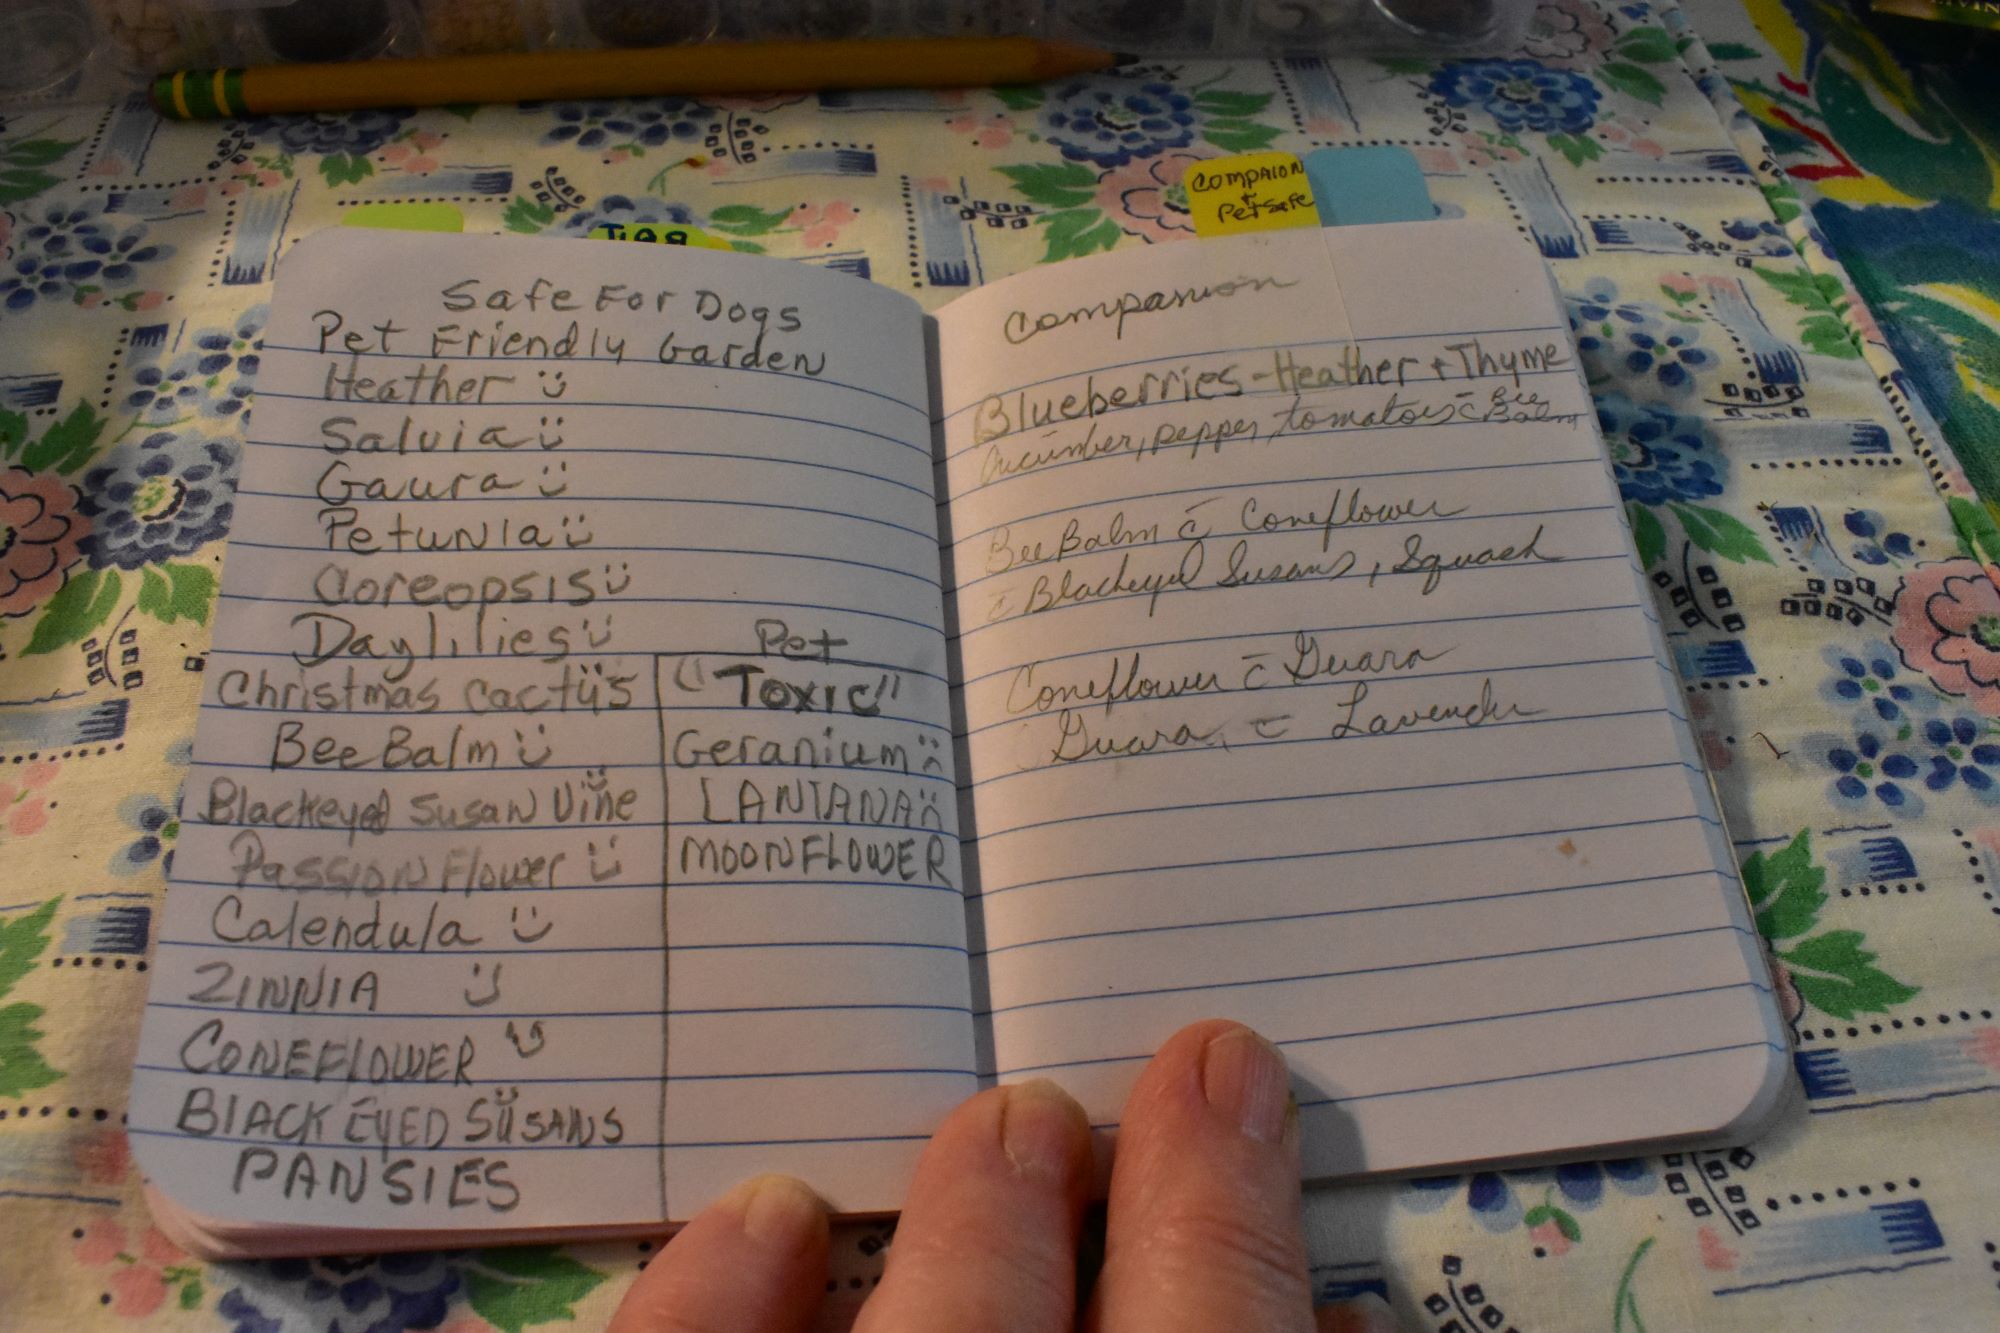 TIPS
COMPAION
+
PetSafe
Safe For Dogs
Pet Friendly Garden
Heather
Salvia
Gaura
Petunia
Coreopsis
Daylilies
Christmas Cactus
Bee Balm
Blackeyed Susan Vine
Passion Flower
Calendula
ZINNIA
CONEFLOWER
BLACK EYED SUSANS
PANSIES
Pet
"Toxic"
Geranium
LANTANA
MOONFLOWER
Companion
Blueberries - Heather + Thyme
Cucumber, pepper, tomatoes - c̄ Bee Balm
Bee Balm c̄ Coneflower
c̄ Blackeyed Susans, Squash
Coneflower c̄ Guara
Guara, c̄ Lavender